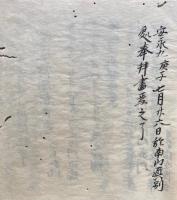 安永九庚子七月廿六日於南内遊到
奉拝書写之了